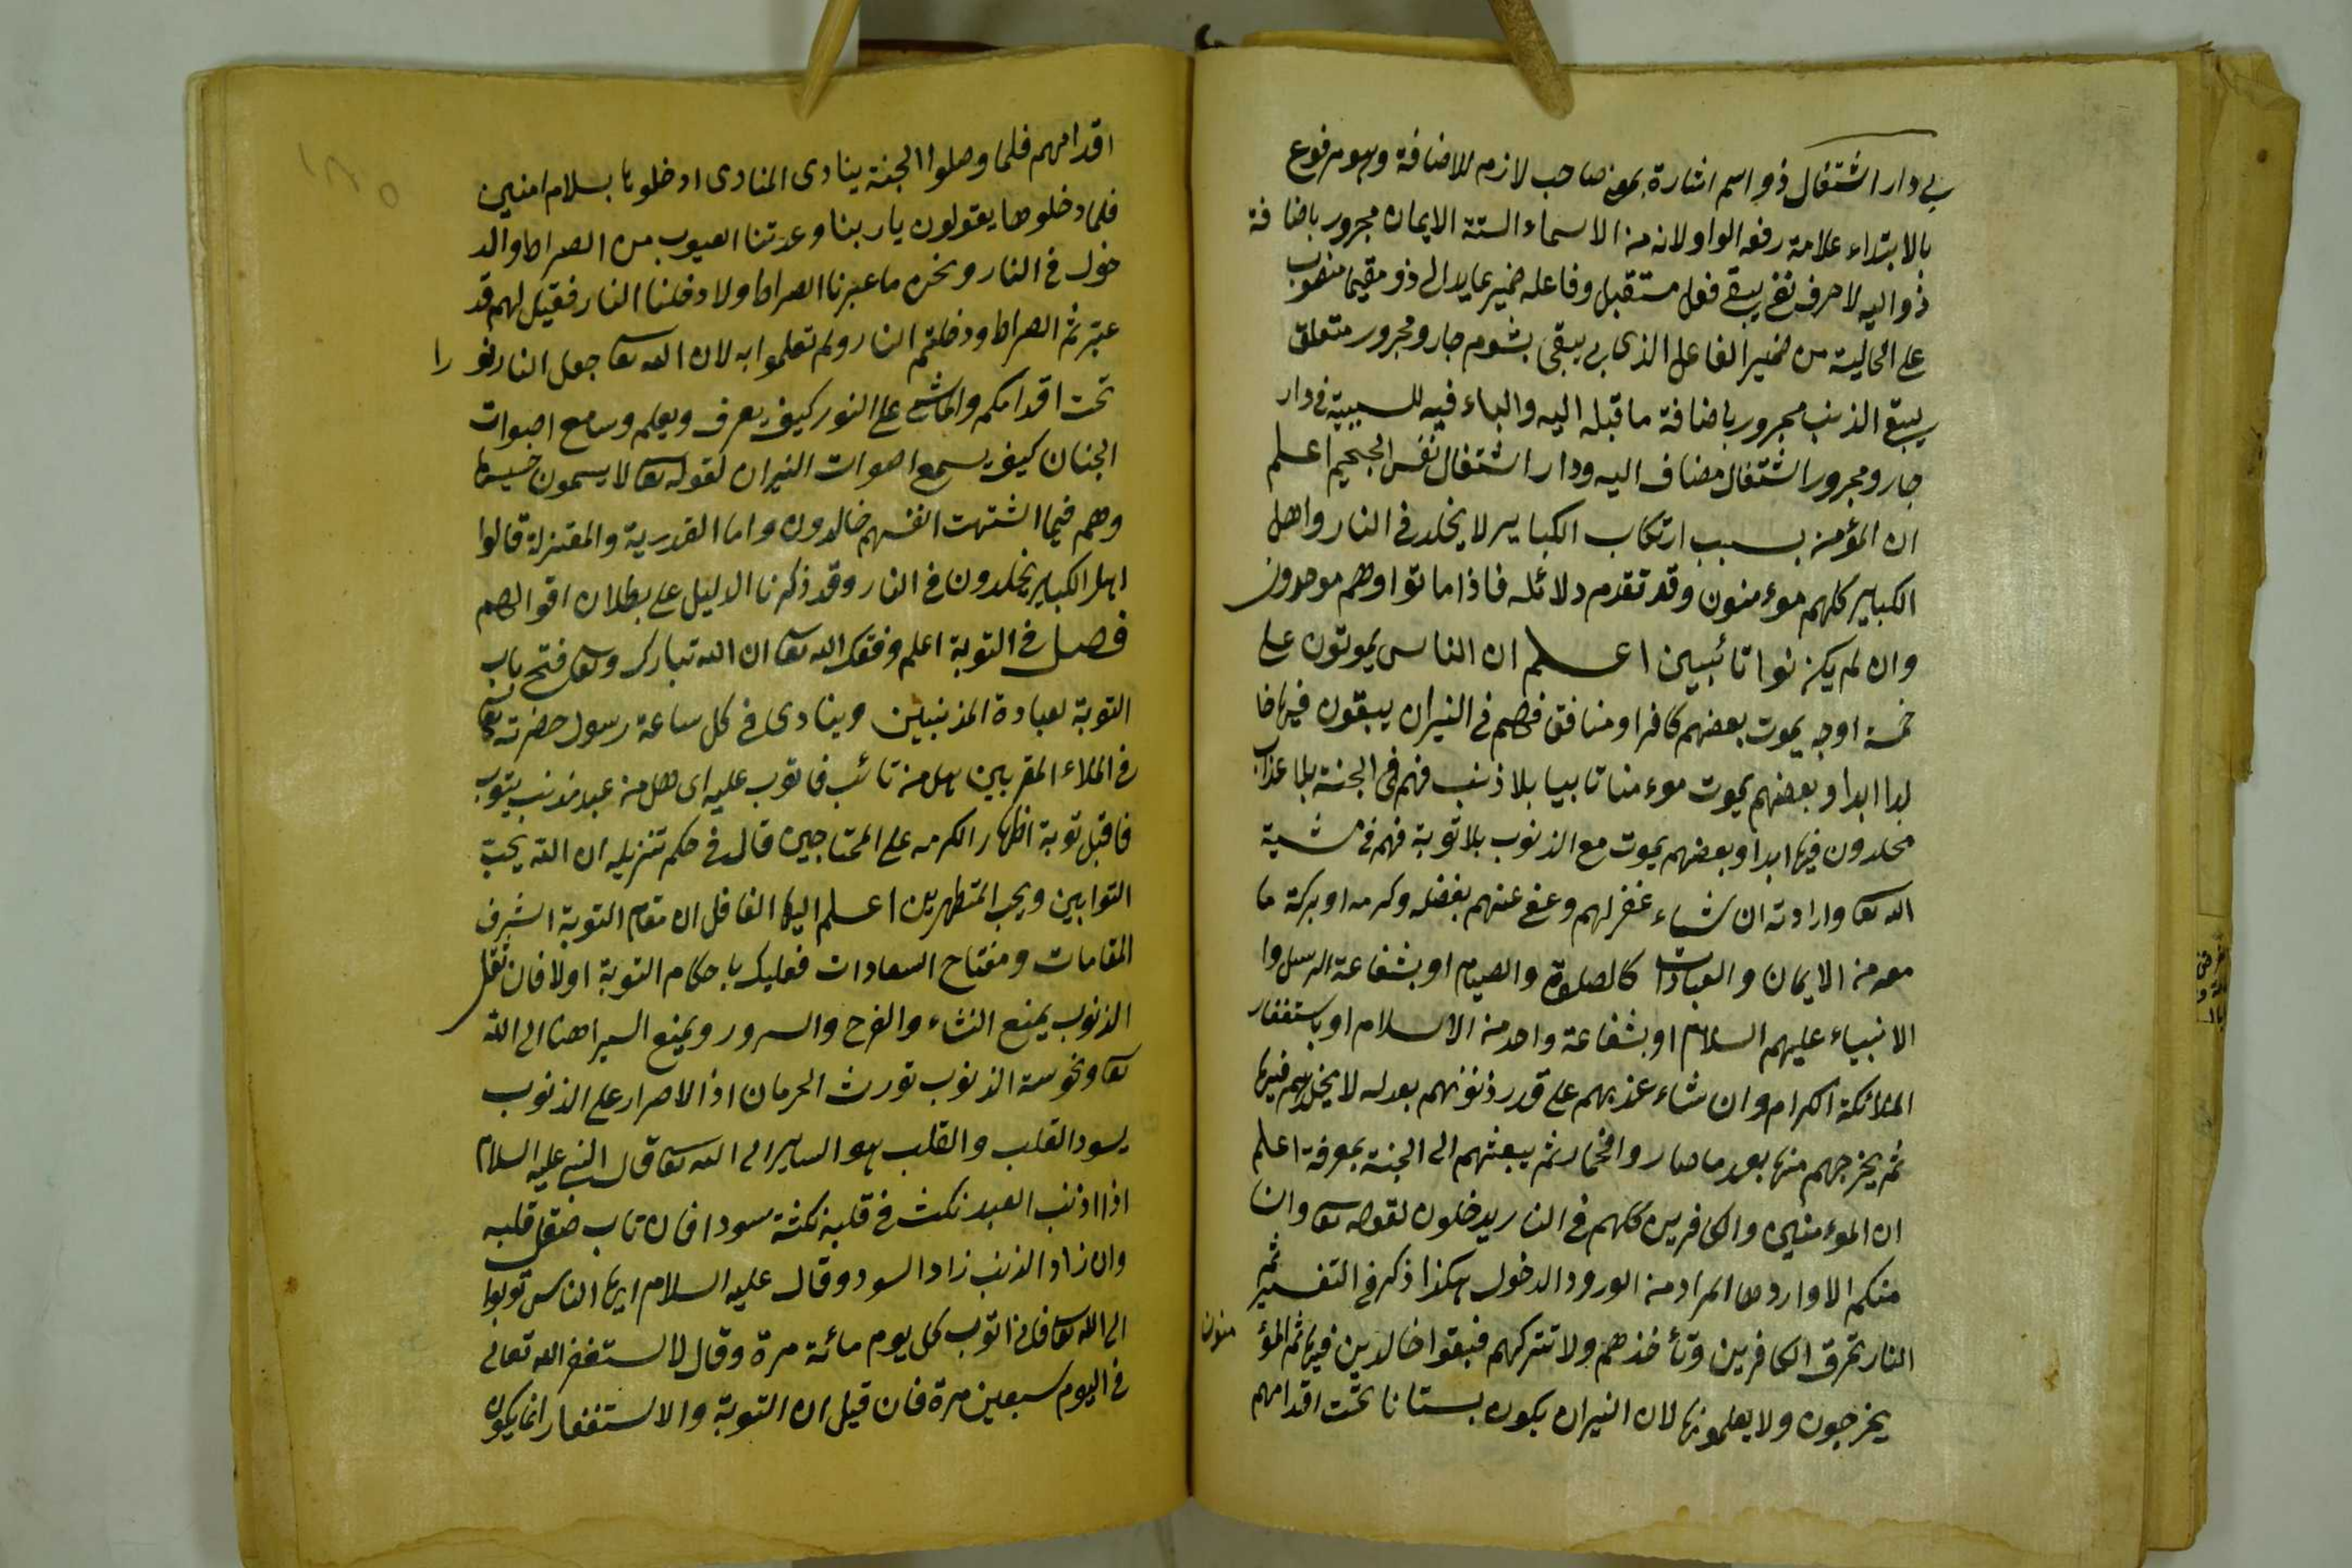 بى دار اشتغال ذو اسم اشارة بمعن صاحب لازم للاضافة وهو مرفوع
بالابتداء علامة رفعه الواو لانه من الاسماء الستة الايمان مجرور باضافة
ذو اليه لا حرف نفى يبقى فعل مستقبل وفاعله ضمير عايد الى ذو مقيما منصوب
على الحالية من ضمير الفاعل الذى بى يبقى بشوم جار ومجرور متعلق
يبقى الذنب مجرور باضافة ما قبله اليه والباء فيه للسببية فى دار
جار ومجرور اشتغال مضاف اليه ودار اشتغال نفس الجحيم اعلم
ان المؤمن بسبب ارتكاب الكباير لا يخلد فى النار واهل
الكباير كلهم موءمنون وقد تقدم دلائله فاذا ماتوا وهم موحدون
وان لم يكونوا تائبين اعلم ان الناس يموتون على
خمسة اوجه يموت بعضهم كافرا ومنافق فهم فى النيران يبقون فيها خا
لدا ابدا وبعضهم يموت موءمنا تابيا بلا ذنب فهم فى الجنة بلا عذاب
مخلدون فيها ابدا وبعضهم يموت مع الذنوب بلا توبة فهم فى مشية
الله تعا وارادته ان شاء غفر لهم وعفى عنهم بفضله وكرمه او بركة ما
معه من الايمان والعبادات كالصلوة والصيام او بشفاعة الرسل وا
الانبياء عليهم السلام او بشفاعة واحد من الاسلام او باستغفار
الملائكة الكرام وان شاء عذبهم على قدر ذنوبهم بعدله لا يخلدهم فيها
ثم يخرجهم منها بعد ما صاروا فخمارا ثم يبعثهم الى الجنة بمعرفة اعلم
ان الموءمنين والكافرين كلهم فى النار يدخلون لقوله تعا وان
منكم الا واردها المراد من الورود الدخول هكذا ذكر فى التفسير ثم
النار تحرق الكافرين وتأخذهم ولا تتركهم فبقوا خالدين فيها ثم المؤ منون
يخرجون ولا يعلمونها لان النيران يكون بستانا تحت اقدامهم
اقدامهم فلما وصلوا الجنة ينادى المنادى ادخلوها بسلام امنين
فلما دخلوها يقولون يا ربنا وعدتنا العيوب من الصراط والد
خول فى النار ونحن ما عبرنا الصراط ولا دخلنا النار فقيل لهم قد
عبرتم الصراط ودخلتم النار ولم تعلموا به لان الله تعا جعل النار نو را
تحت اقدامكم والماشى على النور كيف يعرف ويعلم وسامع اصوات
الجنان كيف يسمع اصوات النيران لقوله تعا لا يسمعون حسيسها
وهم فيما اشتهت انفسهم خالدون واما القدرية والمعتزلة قالوا
اهل الكباير يخلدون فى النار وقد ذكرنا الدليل على بطلان اقوالهم
فصل فى التوبة اعلم وفقك الله تعا ان الله تبارك وتعا فتح باب
التوبة لعبادة المذنبين وينادى فى كل ساعة رسول حضرته تعا
فى الملاء المقربين هل من تائب فاتوب عليه اى هل من عبد مذنب يتوب
فاقبل توبة اظهار الكرمه على المحتاجين قال فى حكم تنزيله ان الله يحب
التوابين ويحب المتطهرين اعلم ايها الغافل ان مقام التوبة اشرف
المقامات ومفتاح السعادات فعليك باحكام التوبة اولا فان ثقل
الذنوب يمنع النشاء والفرح والسرور ويمنع السير اهنا الى الله
تعا ونحوسة الذنوب تورث الحرمان اذ الاصرار على الذنوب
يسود القلب والقلب هو الساير الى الله تعا قال النبى عليه السلام
اذا اذنب العبد نكث فى قلبه نكثة سودا فان تاب صقل قلبه
وان زاد الذنب زاد السود وقال عليه السلام ايها الناس توبوا
الى الله تعا فانى اتوب كل يوم مائة مرة وقال لاستغفر الله تعالى
فى اليوم سبعين مرة فان قيل ان التوبة والاستغفار انما يكون